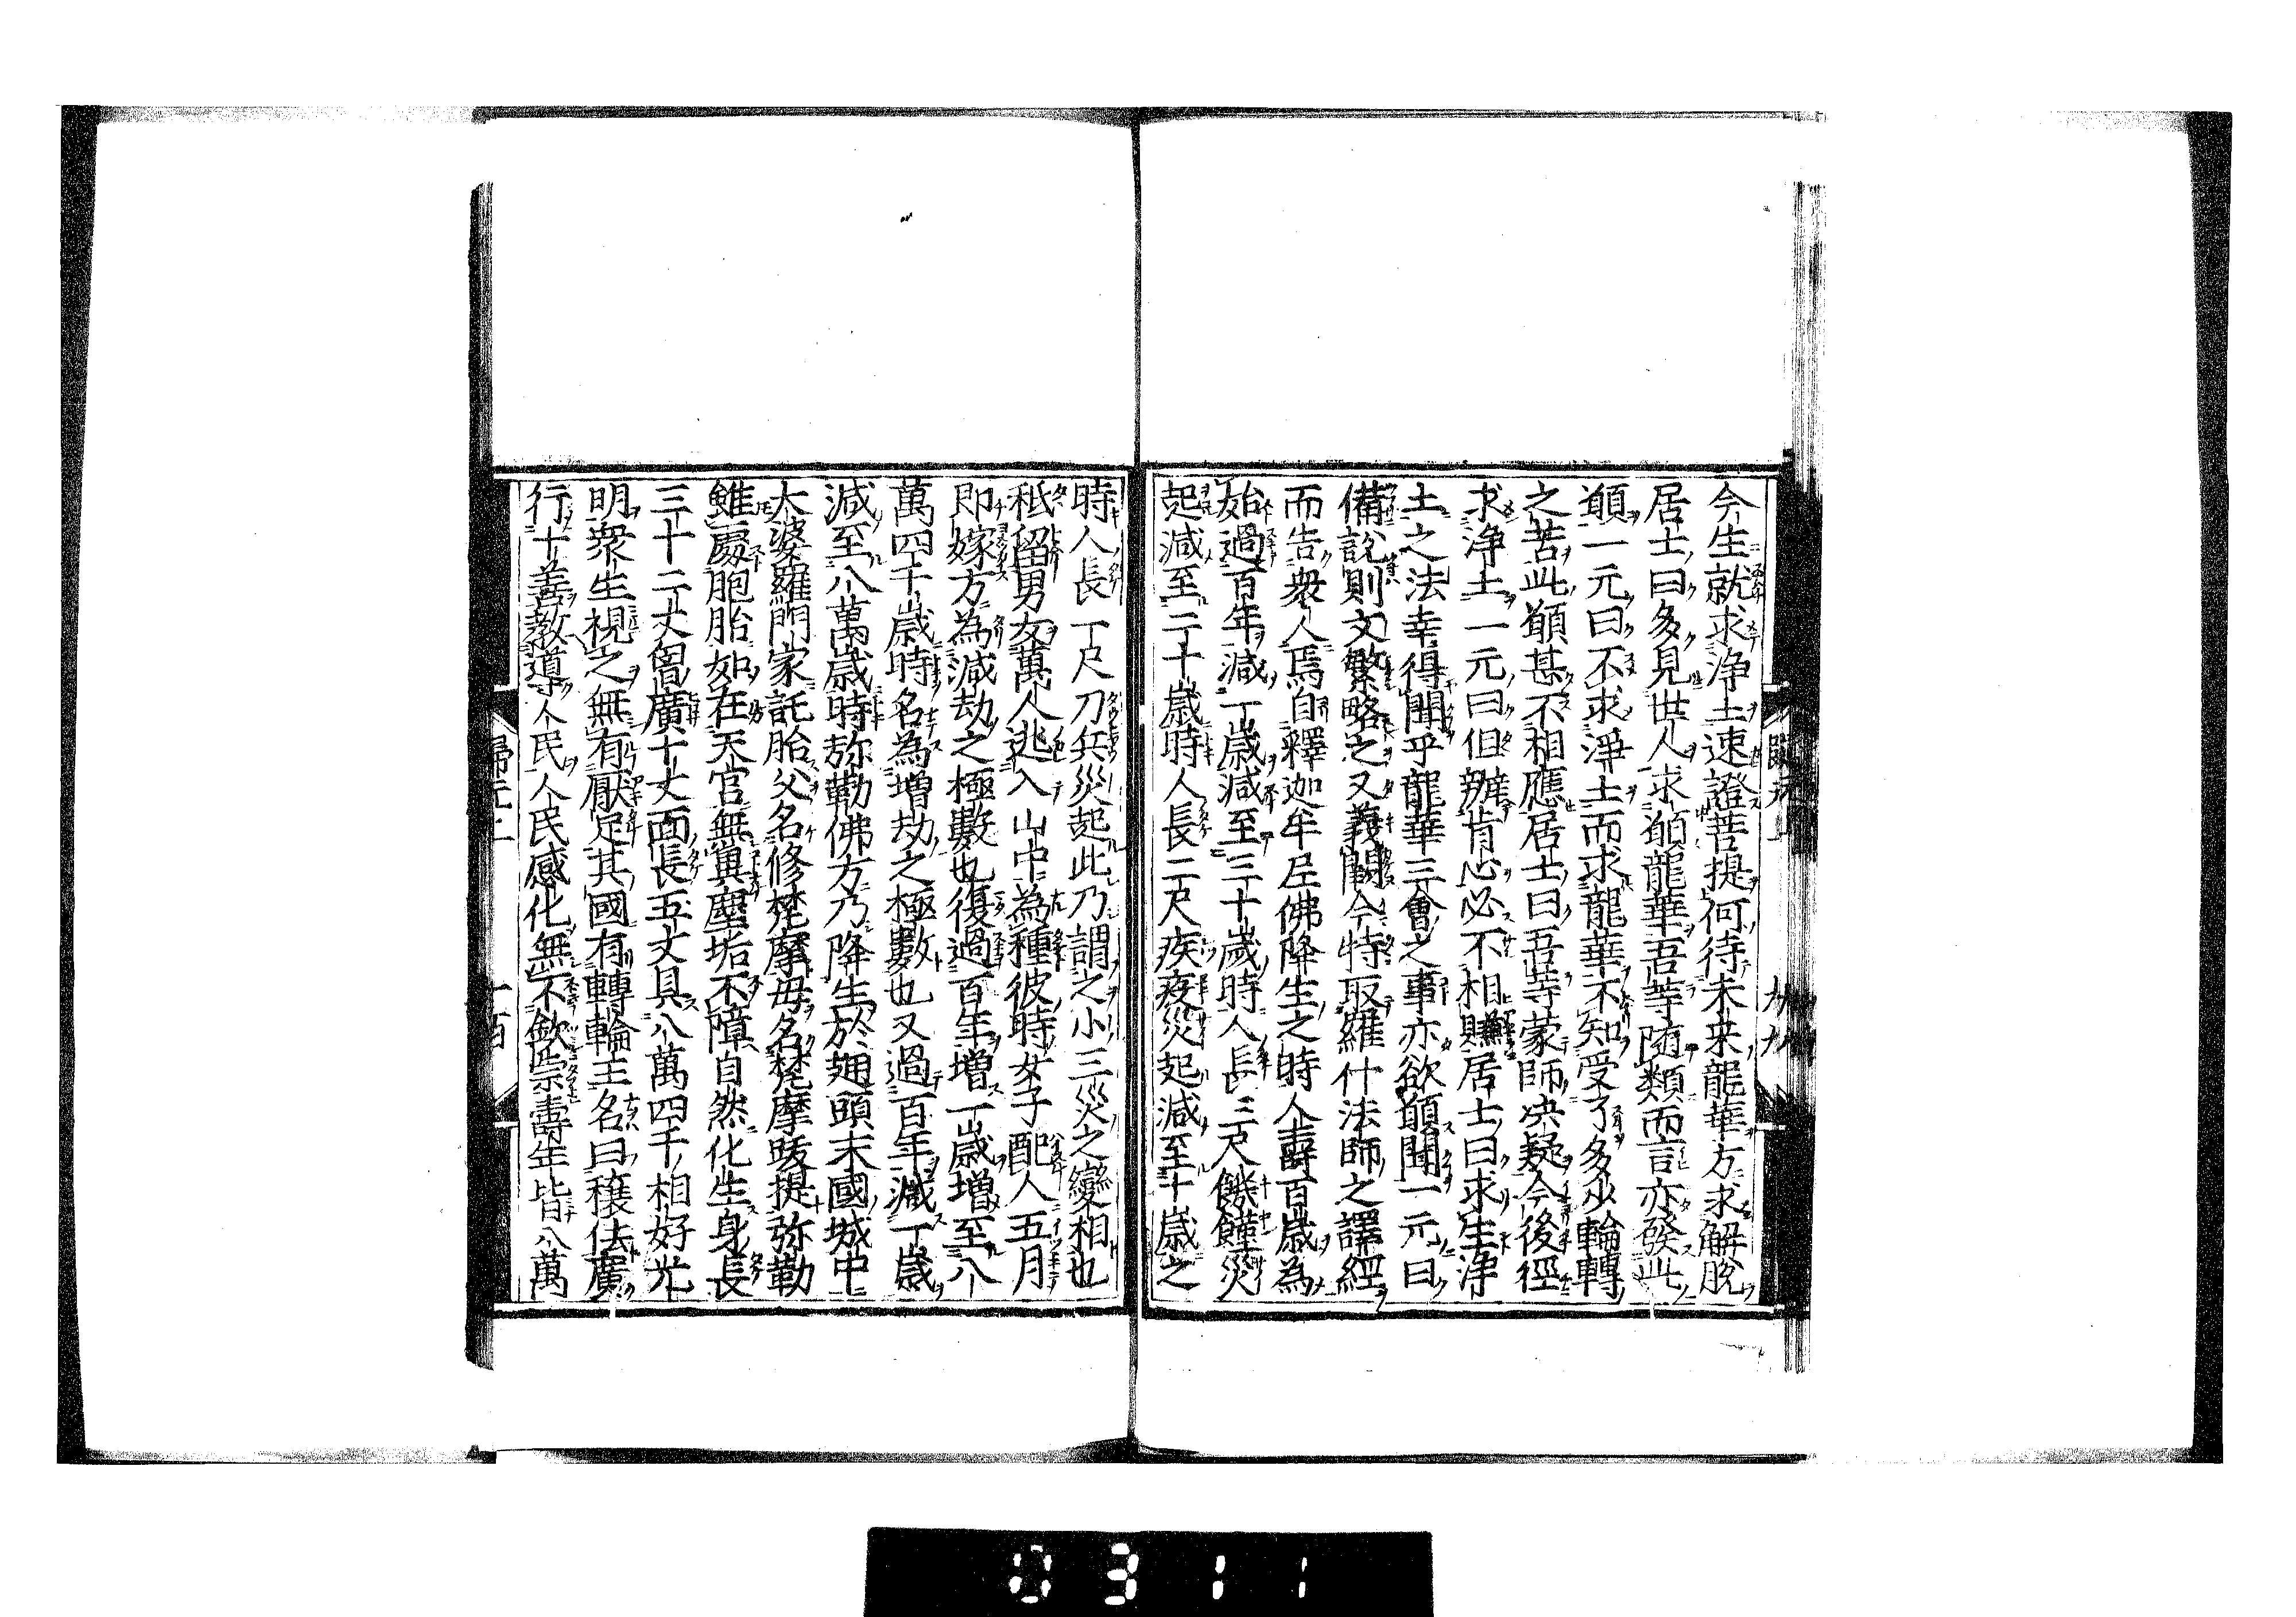 今生就求浄土速證菩提何待未来龍華方求解脫
居士曰多見世人求願龍華吾等随類而言亦發此
願一元曰不求淨土而求龍華不知受了多少輪轉
之苦此願甚不相應居士曰吾等蒙師决疑今後徑
求浄土一元曰但辦肯心必不相賺居士曰求生淨
土之法幸得聞乎龍華三會之事亦欲願聞一元曰
備說則文繁略之又義闕今特取羅什法師之譯經
而告衆人焉自釋迦牟尼佛降生之時人壽百歳為
始過百年減一歳減至三十歳時人長三尺饑饉災
起減至二十歳時人長二尺疾疫災起減至十歳之
時人長一尺刀兵災起此乃謂之小三災之變相也
秖留男女萬人逃入山中為種彼時女子配人五月
即嫁方為減劫之極數也復過百年增一歳增至八
萬四千歳時名為增劫之極數也又過百年減一歳
減至八萬歳時弥勒佛方乃降生於翅頭末國城中
大婆羅門家託胎父名修梵摩母名梵摩跋提弥勒
雖處胞胎如在天宮無異塵垢不障自然化生身長
三十二丈胷廣十丈面長五丈具八萬四千相好光
明衆生視之無有厭足其國有轉輪王名曰穣佉廣
行十善教導人民人民感化無不欽崇壽年皆八萬
0311